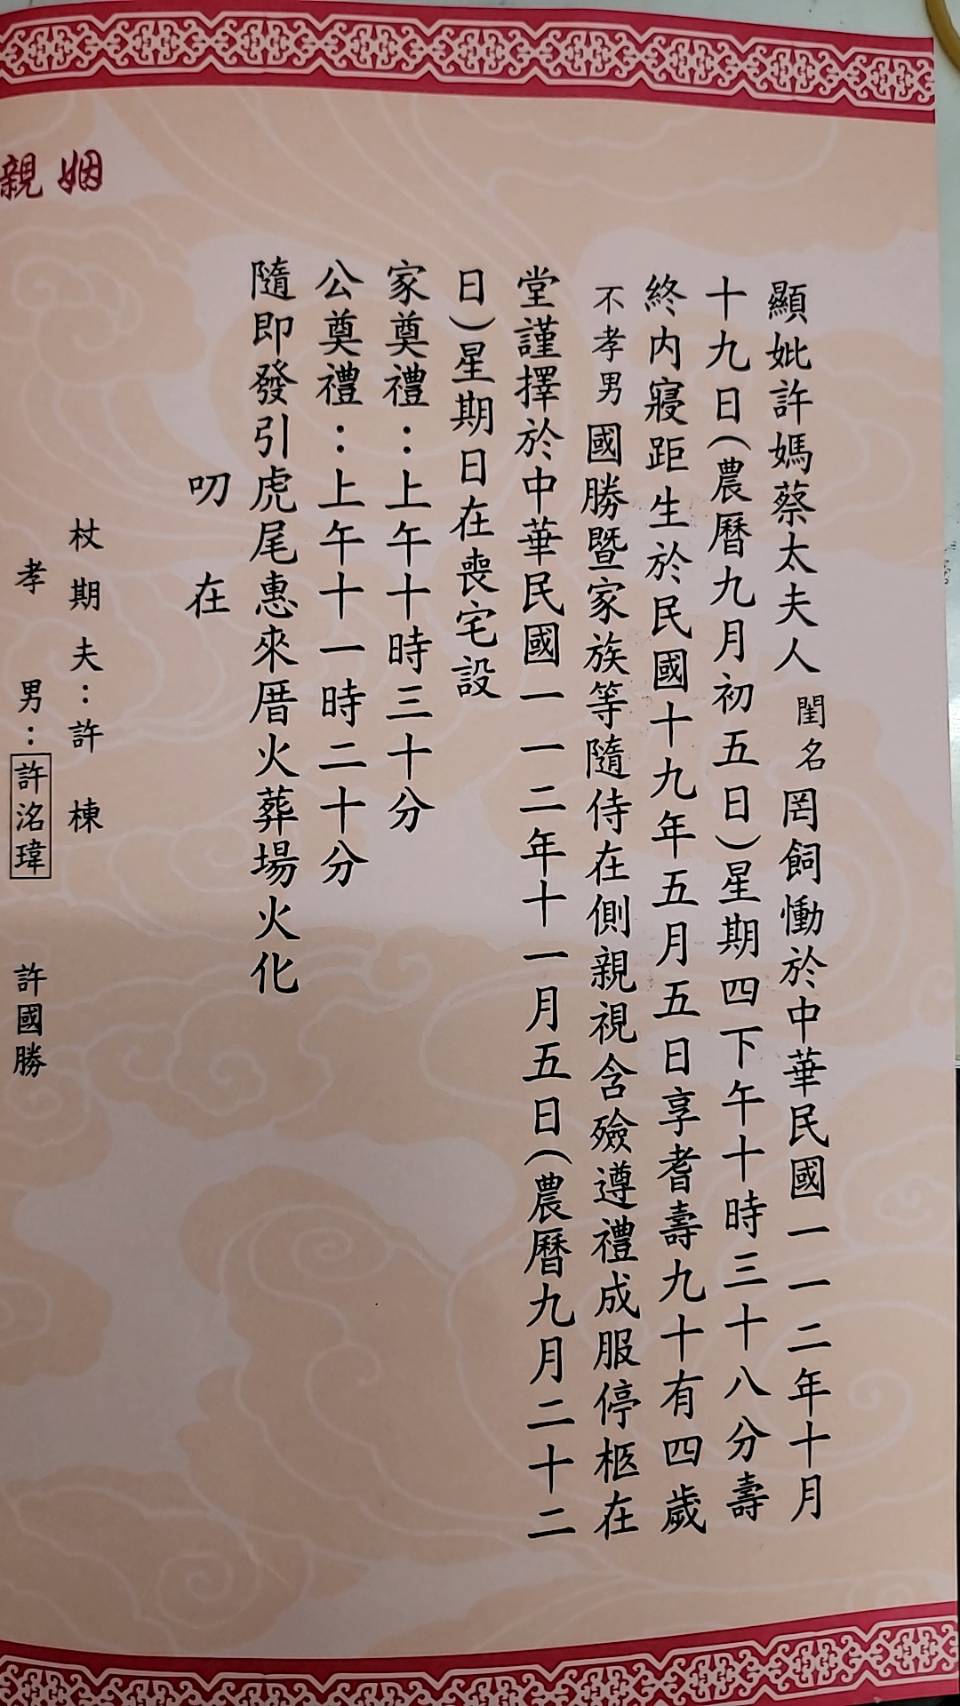 顯妣許媽蔡太夫人閨名罔飼慟於中華民國一一二年十月
十九日(農曆九月初五日)星期四下午十時三十八分壽
終內寢距生於民國十九年五月五日享耆壽九十有四歲
不孝男國勝暨家族等隨侍在側親視含殮遵禮成服停柩在
堂謹擇於中華民國一一二年十一月五日(農曆九月二十二
日)星期日在喪宅設
家奠禮：上午十時三十分
公奠禮：上午十一時二十分
隨即發引虎尾惠來厝火葬場火化
叨在
姻親
杖期夫：許棟
孝男：許洺瑋 許國勝